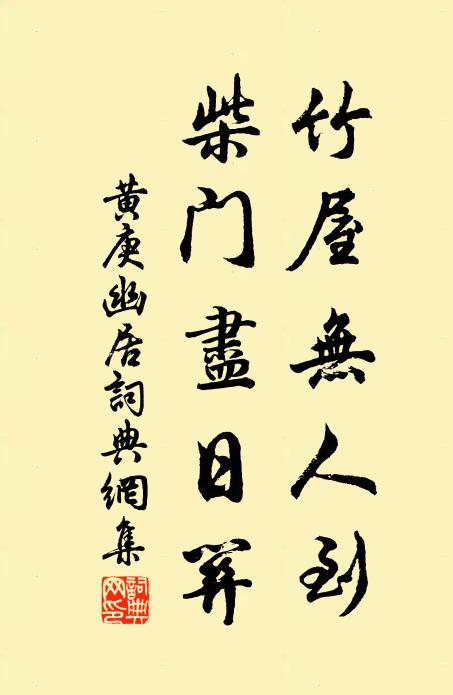 竹屋無人到
柴門盡日開
黄庚幽居詞典網集
詞典网印